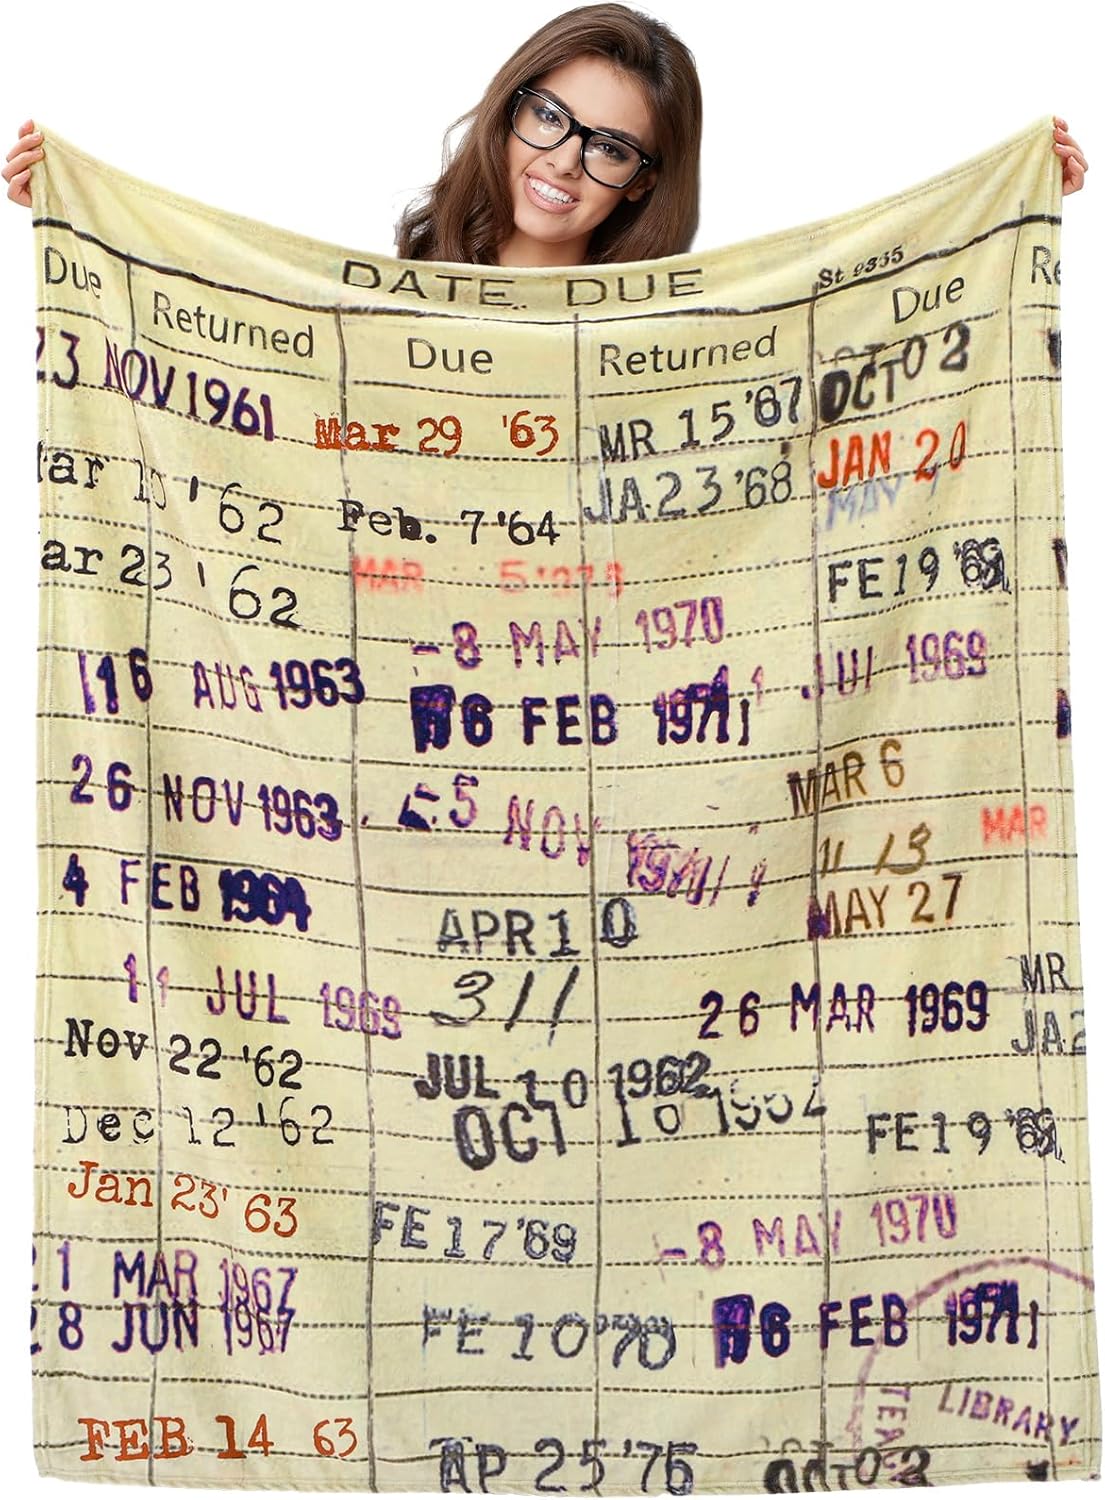 DATE DUE St 9335
Due Returned Due Returned Due
23 NOV 1961
Mar 29 '63
MR 15 '67
OCT 0 2
JA 23 '68
JAN 20
MAY
ar 10 '62
Feb. 7 '64
ar 23 '62
MAR
FE 19 '69
- 8 MAY 1970
16 AUG 1963
6 FEB 1971
JUL 1969
26 NOV 1963
5 NOV 1971
MAR 6
MAR
11 13
4 FEB 1964
APR 1 0
MAY 27
11 JUL 1969
311
26 MAR 1969
MR
JA 2
Nov 22 '62
JUL 10 1962
Dec 12 '62
OCT 10 1962
FE 19 '69
Jan 23' 63
FE 17 '69
- 8 MAY 1970
21 MAR 1967
28 JUN 1967
FE 10 '70
6 FEB 1971
LIBRARY
FEB 14 63
AP 25 '75
OCT 0 2